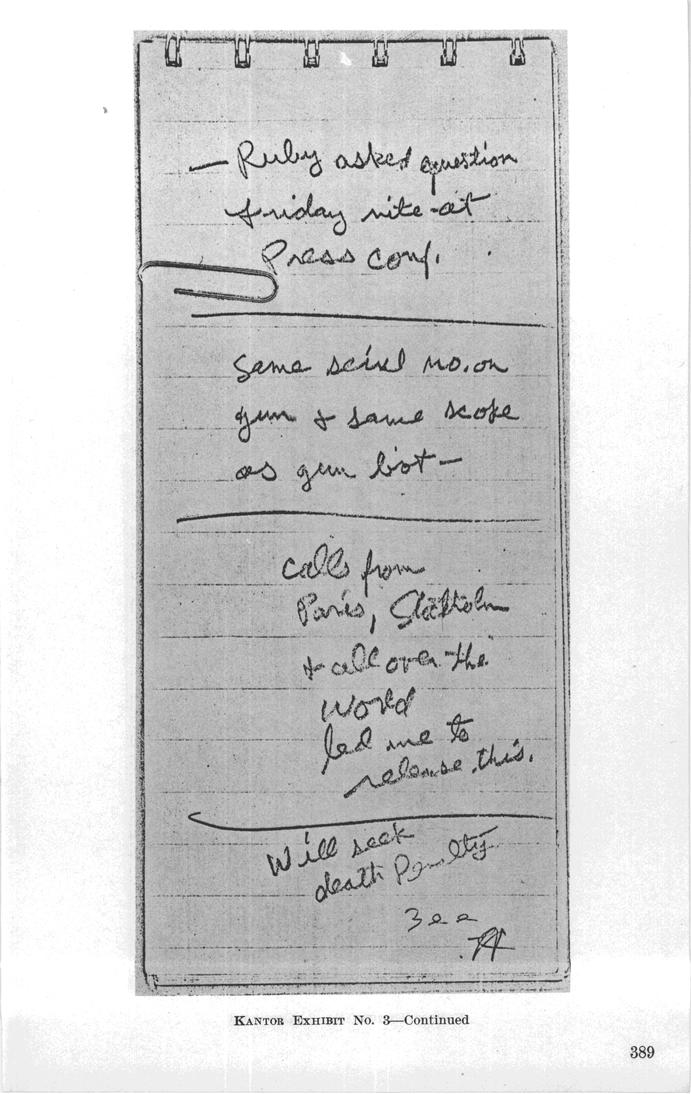 — Ruby asked question
Friday nite at
Press conf.
Same serial no. on
gun & same scope
as gun b'ot —
Calls from
Paris, Stockholm
& all over the
world
led me to
release this.
Will seek
death Penalty
KANTOR EXHIBIT No. 3—Continued
389